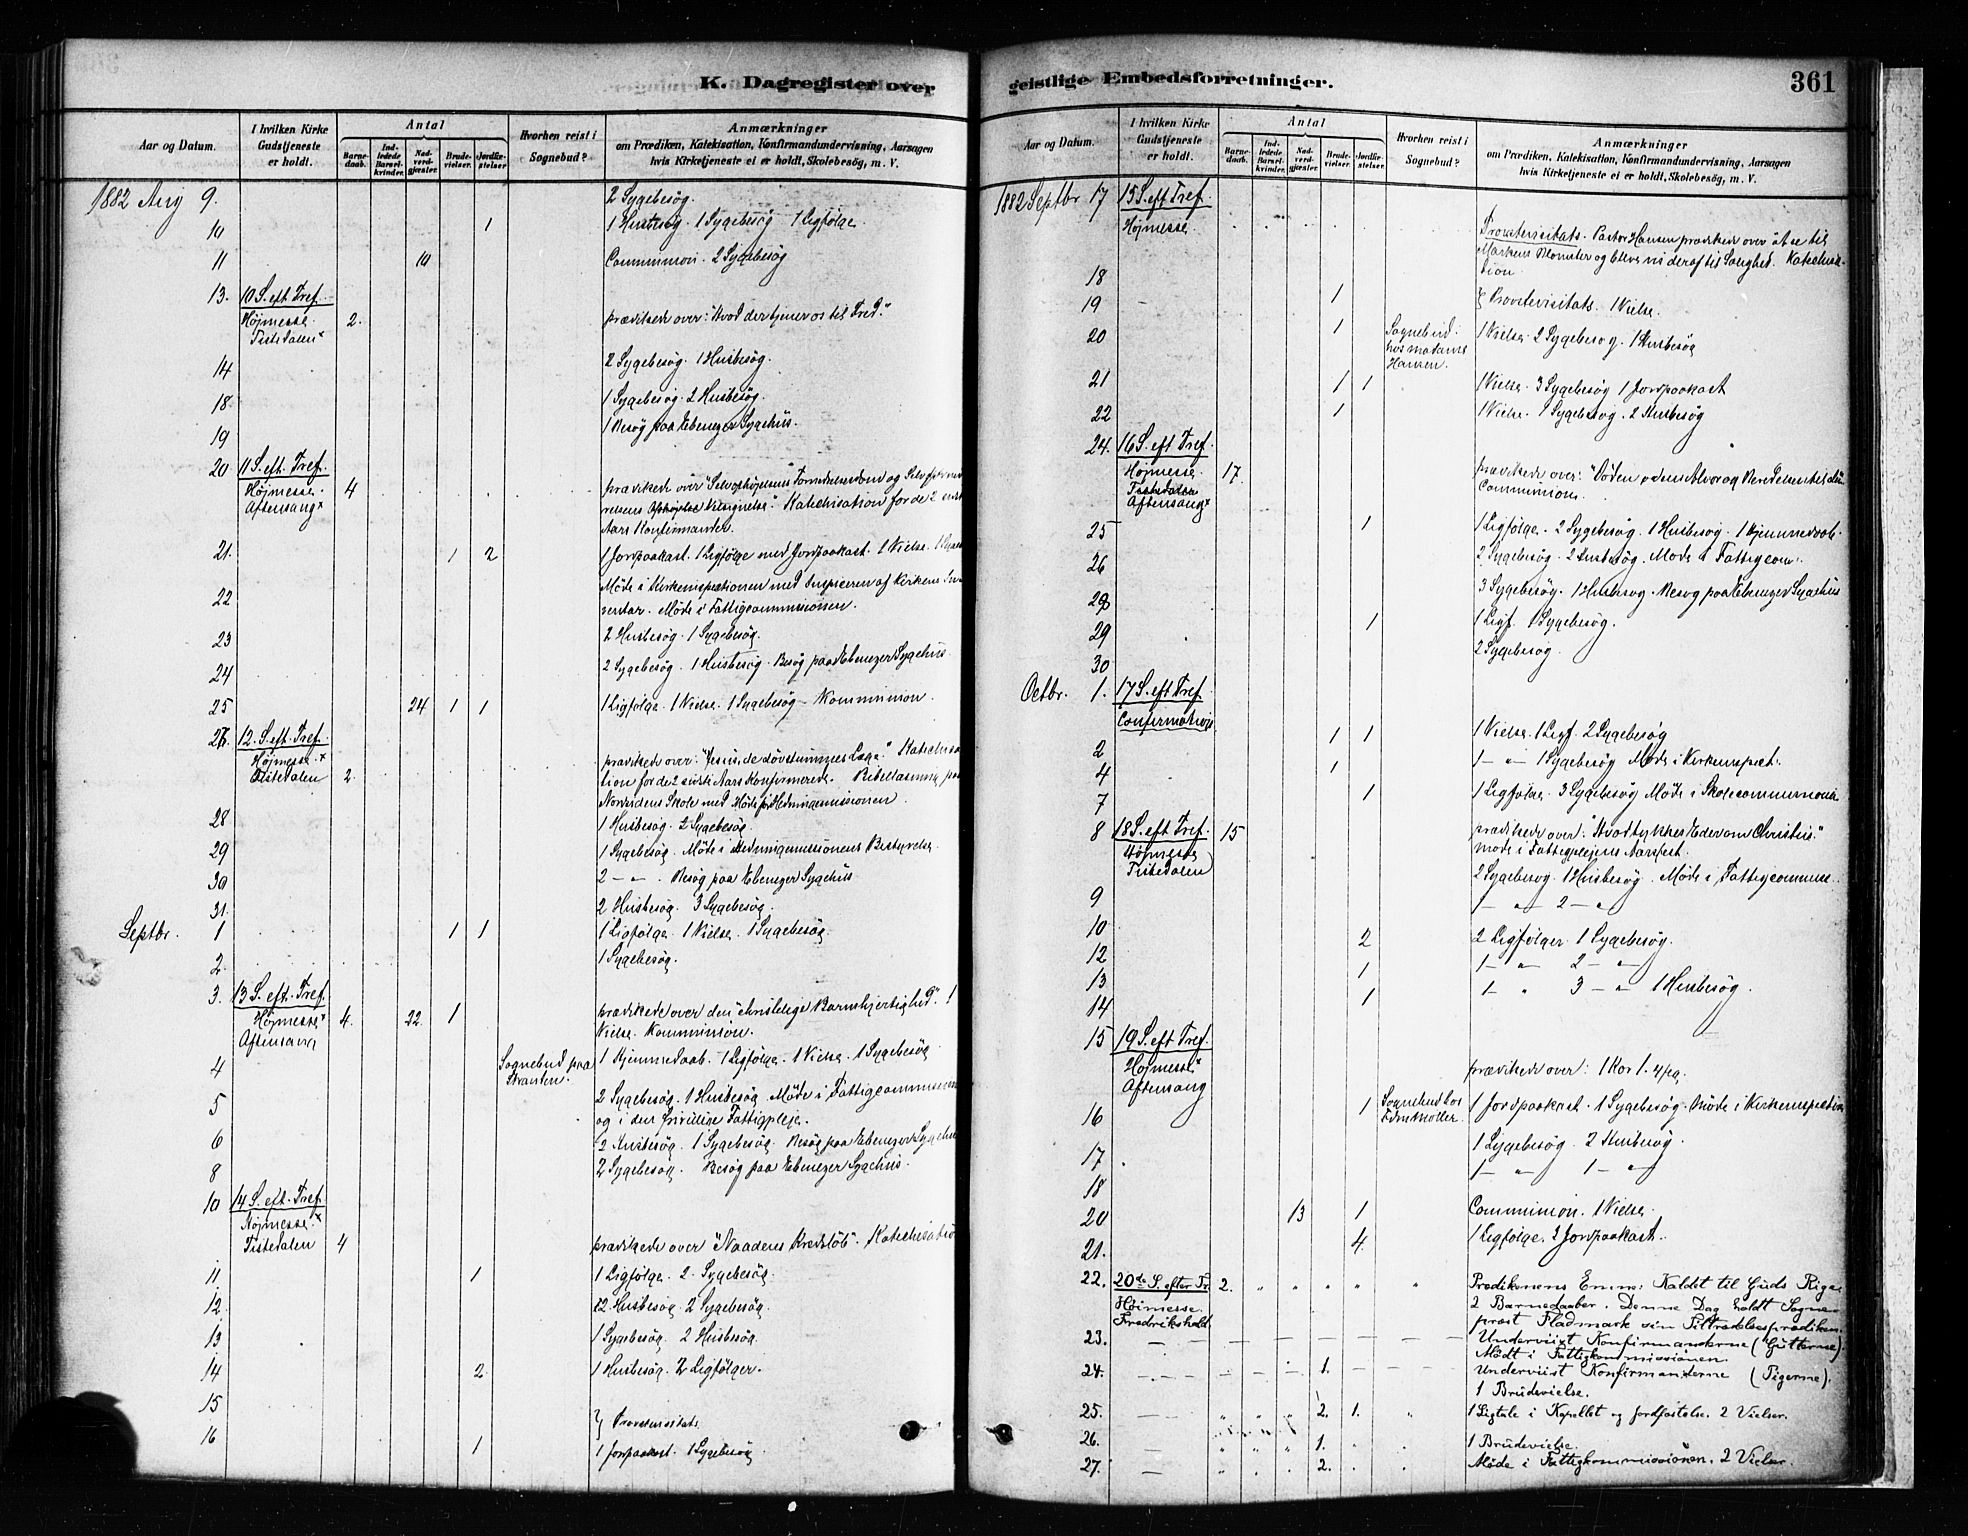 K. Dagregister over
Aar og Datum.
I hvilken Kirke Gudstjeneste er holdt.
Antal
Barnedaab.
Indledede Barselkvinder.
Nadverdgjester.
Brudevielser.
Jordfæstelser.
Hvorhen reist i Sognebud?
Anmærkninger
om Prædiken, Katekisation, Konfirmandundervisning, Aarsagen
hvis Kirketjeneste ei er holdt, Skolebesøg, m. V.
1882 Aug 9. 2 Sygebesög.
10 1 1 Husbesøg. 1 Sygebesög 1 Ligfølge
11 10 Communion. 2 Sygebesög
13. 10 S. eft Tref.
Højmesse. 2. prædikede over: "Hvad der tjener os til Fred."
Tistedalen
14 2 Sygebesög. 1 Husbesög.
18 1 Sygebesög. 2 Husbesög.
19 1 Besög paa Ebenezer Sygehus.
20 11 S. eft. Tref.
Højmesse. 4 prædikede over
Aftensang Katechisation for de 2
Aars Konfirmander.
21. 1 2 1 Jordpaakast. 1 Ligfölge med Jordpaakast. 1 Vielse.
22 Möde i Kirkeinspektionen med
ventar. Möde i Fattigcommissionen.
23 2 Husbesög. 1 Sygebesög.
24 2 Sygebesög. 1 Husbesög. Besög paa Ebenezer Sygehus.
25 24 1 1 1 Ligfölge. 1 Vielse. 1 Sygebesög - Kommunion.
12. S. eft. Tref.
Højmesse
Tistedalen 2. prædikede over: "Jesus, de døvstummes Læge." Katechisa
tion for de 2 sidste Aars Konfirmerede. Bibellæsning paa
Skole med Møde for Hedningemissionen.
28 1 Husbesög. 2 Sygebesög
29 1 Sygebesög. Möde i Hedningemissionens Bestyrelse.
30 2 — " — . Besög paa Ebenezer Sygehus
31. 2 Husbesög. 3 Sygebesög.
Septbr. 1 1 1 1 Ligfölge. 1 Vielse. 1 Sygebesög.
2. 1 Sygebesög.
3. 13 S. eft. Tref.
Højmesse 4. 22. 1 prædikede over den "christelige Barmhjertighed". 1
Aftensang Vielse. Kommunion.
4 Sognebud paa Stranden. 1 Hjemmedaab. 1 Ligfølge. 1 Vielse. 1 Sygebesög
5 2 Sygebesög. 1 Husbesög. Möde i Fattigcommissionen
og i den frivillige Fattigpleje.
6 2 Husbesög. 1 Sygebesög. Besög paa Ebenezer Sygehus
8 2 Sygebesög. Besög paa Ebenezer Sygehus.
10 14 S. eft. Tref.
Højmesse.
Tistedalen 4 prædikede over "Naadens Kredsløb". Katechisation
11 1 1 Ligfølge. 2. Sygebesög.
12. 2 Husbesög. 2 Sygebesög.
13 1 Sygebesög. 2 Husbesög.
14 2. 1 Husbesög. 2 Ligfölger.
15
} Provstevisitats.
16 1 1 Jordpaakast. 1 Sygebesög
geistlige Embedsforretninger.
361
Aar og Datum.
I hvilken Kirke Gudstjeneste er holdt.
Antal
Barnedaab.
Indledede Barselkvinder.
Nadverdgjester.
Brudevielser.
Jordfæstelser.
Hvorhen reist i Sognebud?
Anmærkninger
om Prædiken, Katekisation, Konfirmandundervisning, Aarsagen
hvis Kirketjeneste ei er holdt, Skolebesøg, m. V.
1882 Septbr 17 15 S. eft Tref.
Højmesse. Provstevisitats. Pastor Hansen prædikede over at se til
Markens Blomster og blive vis deraf til Salighed. Katechisa-
tion.
18
19 1 } Provstevisitats. 1 Vielse.
20 1 Sognebud hos Madame Hansen. 1 Vielse 2 Sygebesög. 1 Husbesög
21 1 1 1 Vielse. 3 Sygebesög 1 Jordpaakast
22 1 1 Vielse. 1 Sygebesög. 2 Husbesög
24. 16 S. eft Tref.
Højmesse. 17. prædikede over: "Döden
Tistedalen Communion.
Aftensang
25 1 1 Ligfølge. 2 Sygebesög. 1 Husbesög. 1 Hjemmedaab.
26 2 Sygebesög. 2 Husbesög. Möde i Fattigcom.
28 3 Sygebesög. 1 Husbesög. Besög paa Ebenezer Sygehus
29 1 1 Ligf. 1 Sygebesög.
30 2 Sygebesög.
Octbr. 1. 17 S. eft Tref.
Confirmation
2 1 1 1 Vielse. 1 Ligf. 2 Sygebesög
4 1 1 — " — 1 Sygebesög Möde i Kirkeinspect.
7 1 1 Ligfølge. 3 Sygebesög Möde i Skolecommissionen
8 18 S. eft Tref. 15 prædikede over: "Hvad tykkes Eder om Christus."
Højmesse möde i Fattigplejens Aarsfest.
Tistedalen
9 2 Sygebesög. 1 Husbesög. Möde i Fattigcommiss.
10 1 — " — 2 — "
12 2 2 Ligfølger. 1 Sygebesög.
13 1 1 — " — 2 — " —
14 1 1 — " 3 — " 1 Husbesög.
15 19 S. eft Tref.
Højmesse. prædikede over: 1 Kor 1. 4 fg.
Aftensang
16 1 1 Jordpaakast. 1 Sygebesög. Möde i Kirkeinspection
17 1 Sygebesög. 2 Husbesög.
18 1 — " — 1 — "
20 13 1 Communion. 1 Vielse.
21. 4. 1 Ligfølge. 3 Jordpaakast.
22. 20de S. efter Tr. 2. " " " " " Prædikenens Emne: Kaldet til Guds Rige.
Højmesse. 2 Barnedaaber. Denne Dag holdt Sogne-
Fredrikshald. præst Fladmark sin Tiltrædelsesprædiken.
23. — Underviist Konfirmanderne (Gutterne).
Mødt i Fattigkommissionen.
24. — 1. Underviist Konfirmanderne (Pigerne).
1 Brudevielse.
25. — " " " 2. 1. " 1 Ligtale i Kapellet og Jordfæstelse. 2 Vielser.
26. — 1. 1 Brudevielse.
27. — " " " 2. " " Møde i Fattigkommissionen. 2 Vielser.